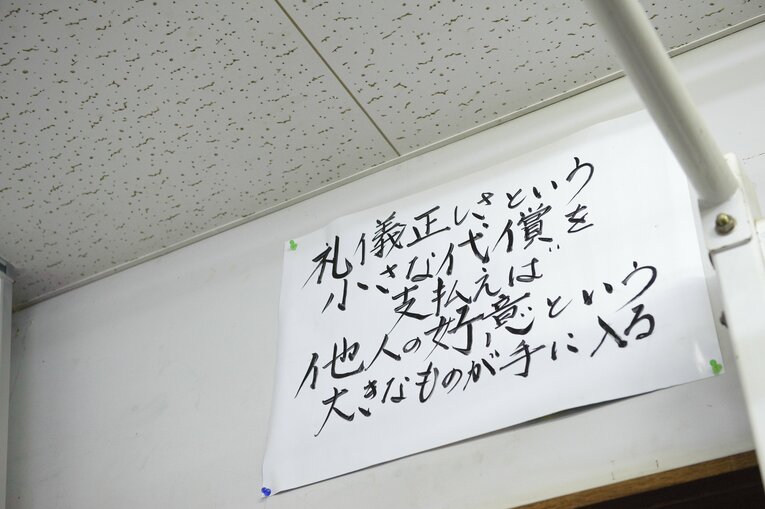 礼儀正しさという
小さな代償を
支払えば
他人の好意という
大きなものが手に入る